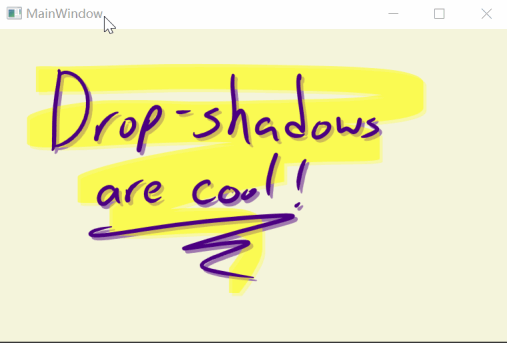 MainWindow
Drop-shadows
are cool!